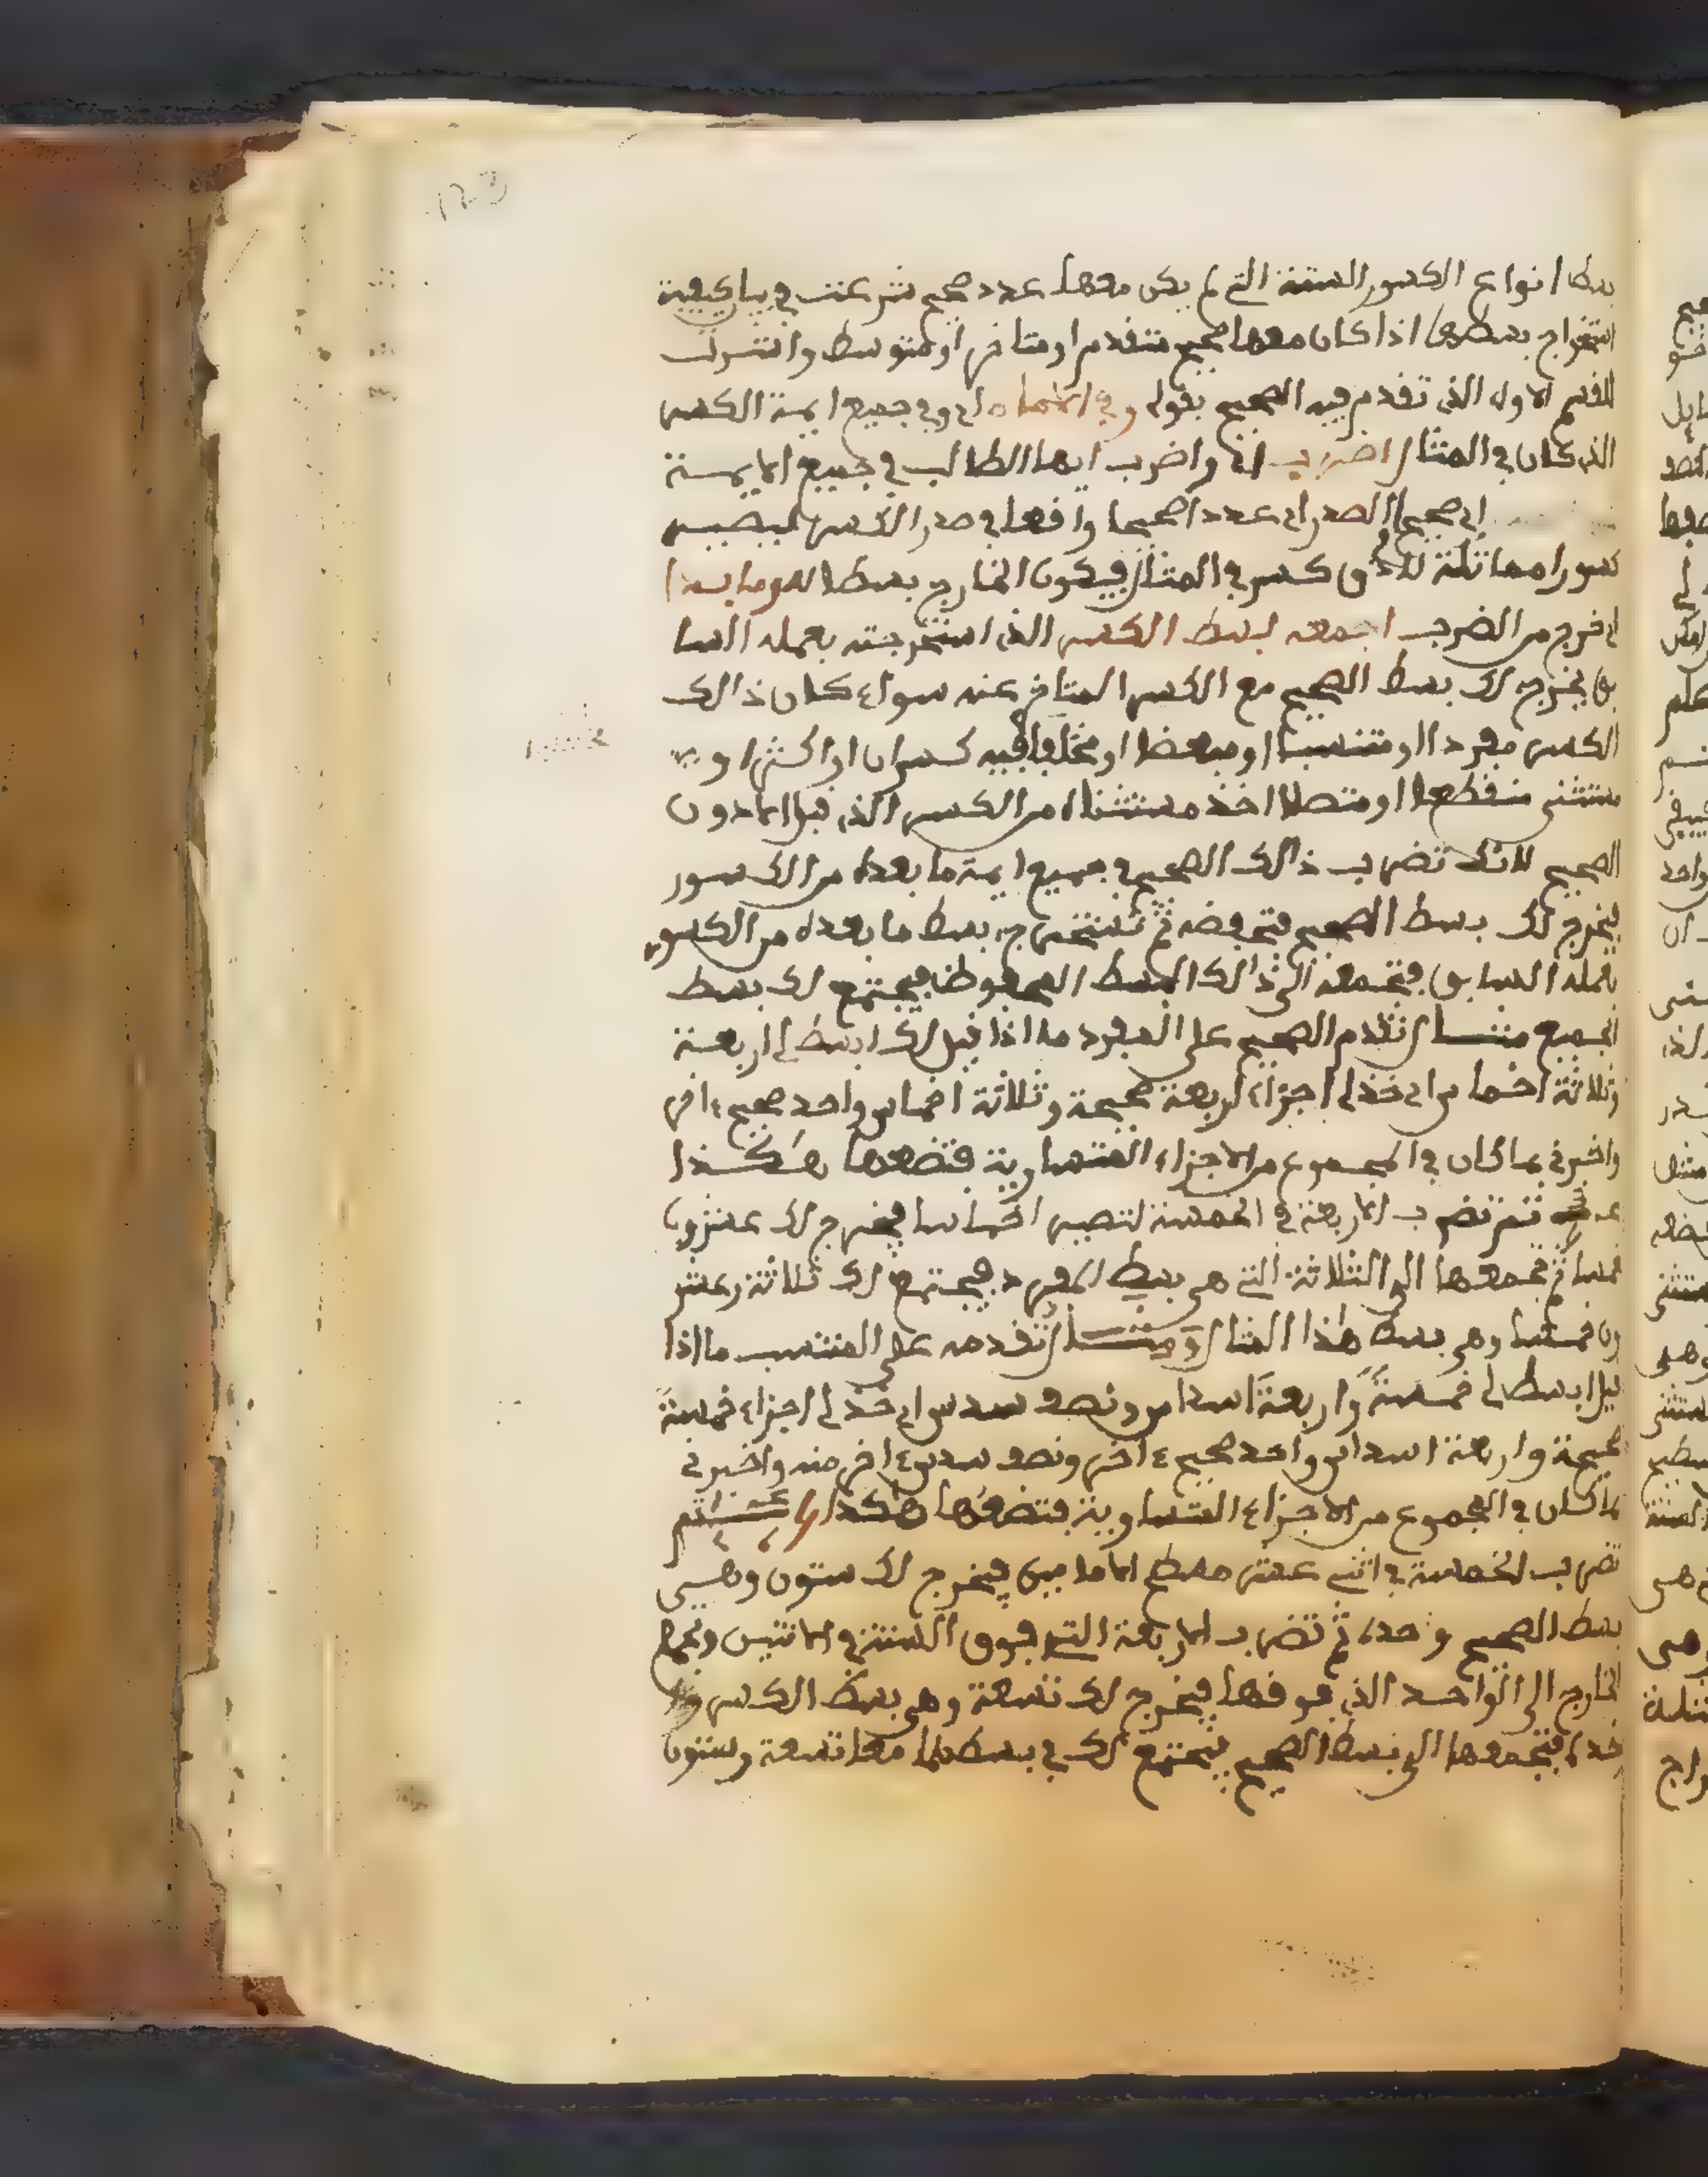 بسط انواع الكسور الستة التي لم يكن معها عدد صحيح شرعت في بيان كيفية
استخراج بسطها اذا كان معها صحيح متقدم او متاخر او متوسط واشرت
للقسم الاول الذي تقدم فيه الصحيح بقولي وفي الائمة اي وفي جميع ايمة الكسر
الذي كان في المثال اضرب اي واضرب ايها الطالب في جميع الايمة
اي صحيح الصدر اي عددا صحيحا واقعا في صدر الكسر ليصير
كسورا مماثلة كسر في المثال فيكون الخارج بسطا له وما بدا
اي خرج من الضرب اجمعه لبسط الكسر الذي استخرجته بعمله السا
بق يخرج لك بسط الصحيح مع الكسر المتاخر عنه سواء كان ذالك
الكسر مفردا او منتسبا او مبعضا او مختلفا فيه كسران او اكثر او
مستثنى منقطعا او متصلا اخذ مستثناه من الكسر الذي قبل الا دون
الصحيح لانك تضرب ذالك الصحيح في جميع ايمة ما بعده من الكسور
يخرج لك بسط الصحيح فتحفضه ثم تستخرج بسط ما بعده من الكسور
بعمله السابق فتجمعه الى ذالك البسط المحفوظ فيجتمع لك بسط
الجميع مثال تقدم الصحيح على المفرد ما اذا قيل لك ابسط لي اربعة
وثلاثة اخماس اي خذ لي اجزاء اربعة صحيحة وثلاثة اخماس واحد صحيح ءاخر
واخبرني بما كان في المجموع من الاجزاء المتساوية فتضعها هكذا
ثم تضرب الاربعة في الخمسة لتصير اخماسا فيخرج لك عشرون
خمسا ثم تجمعها الى الثلاثة التي هي بسط المفرد فيجتمع لك ثلاثة وعشر
ون خمسا وهي بسط هذا المثال ومثال تقدمه على المنتسب ما اذا
قيل ابسط لي خمسة واربعة اسداس ونصف سدس اي خذ لي اجزاء خمسة
صحيحة واربعة اسداس واحد صحيح ءاخر ونصف سدس ءاخر منه واخبرني
بما كان في المجموع من الاجزاء المتساوية فتضعها هكذا ثم
تضرب الخمسة في اثني عشر مسطح الامامين فيخرج لك ستون وهي
بسط الصحيح وحده ثم تضرب الاربعة التي فوق الستة في الاثنين وتجمع
الخارج الى الواحد الذي فوقها فيخرج لك تسعة وهي بسط الكسر و
حده فتجمعها الى بسط الصحيح فيجتمع لك في بسطهما معا تسعة وستون